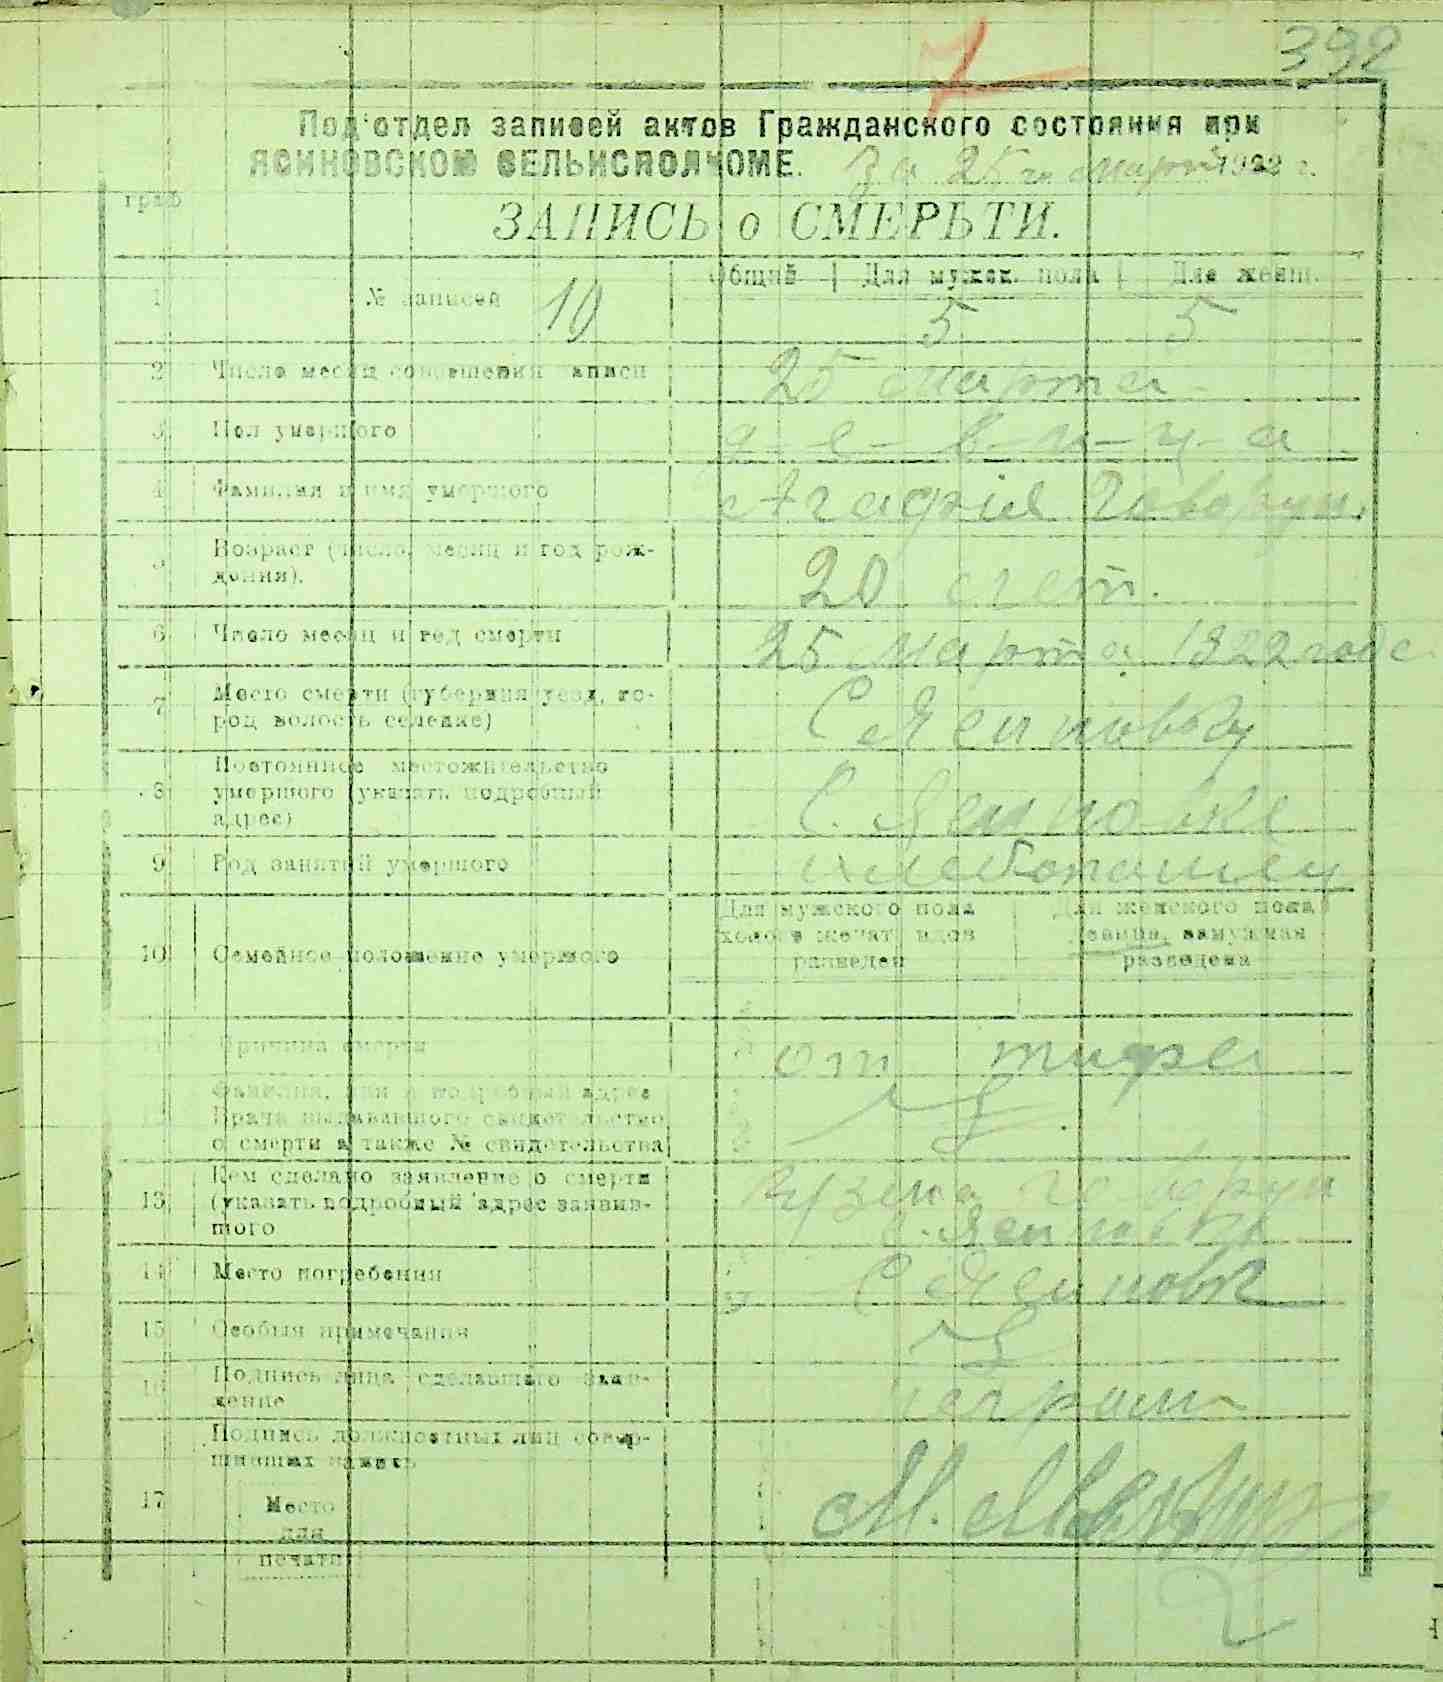 7
392
Под'отдел записей актов Гражданского состояния при
ЯСИНОВСКОМ СЕЛЬИСПОЛКОМЕ. За 25 го Марта 1922 г.
граф
ЗАПИСЬ о СМЕРЬТИ.
Общий | Для мужск. пола | Для женщ.
1 № записей 10 5 5
2 Число месяц совершения записи 25 марта
3 Пол умершого д-е-в-и-ц-а
4 Фамилия и имя умершого Агафия Говорун.
5 Возраст (число, месяц и год рож-
дения). 20 лет.
6 Число месяц и год смерти 25 Марта 1922 года
7 Место смерти (губерния уезд, го-
род волость селение) С Ясиновку
8 Постоянное местожительство
умершого (указать подробный
адрес) С. Ясиновке
9 Род занятий умершого хлебопашец
Для мужского пола Для женского пола
холост женат вдов девица, замужмая
10 Семейное положение умершого
разведен разведена
11 Причина смерти от тифа
Фамилия, имя и подробный адрес
12 Врача выдававшого свидетельство
о смерти а также № свидетельства
Кем сделано заявление о смерти
13 (указать подробный адрес заявив-
шого Кузьма Говорун
с. Ясиновки
14 Место погребения С Ясиновк
15 Особыя примечания
16 Подпись лица сделавшего заяв-
ление Неграм
Подпись должностных лиц совер-
шивших запись
17 Место
для
печати
М.